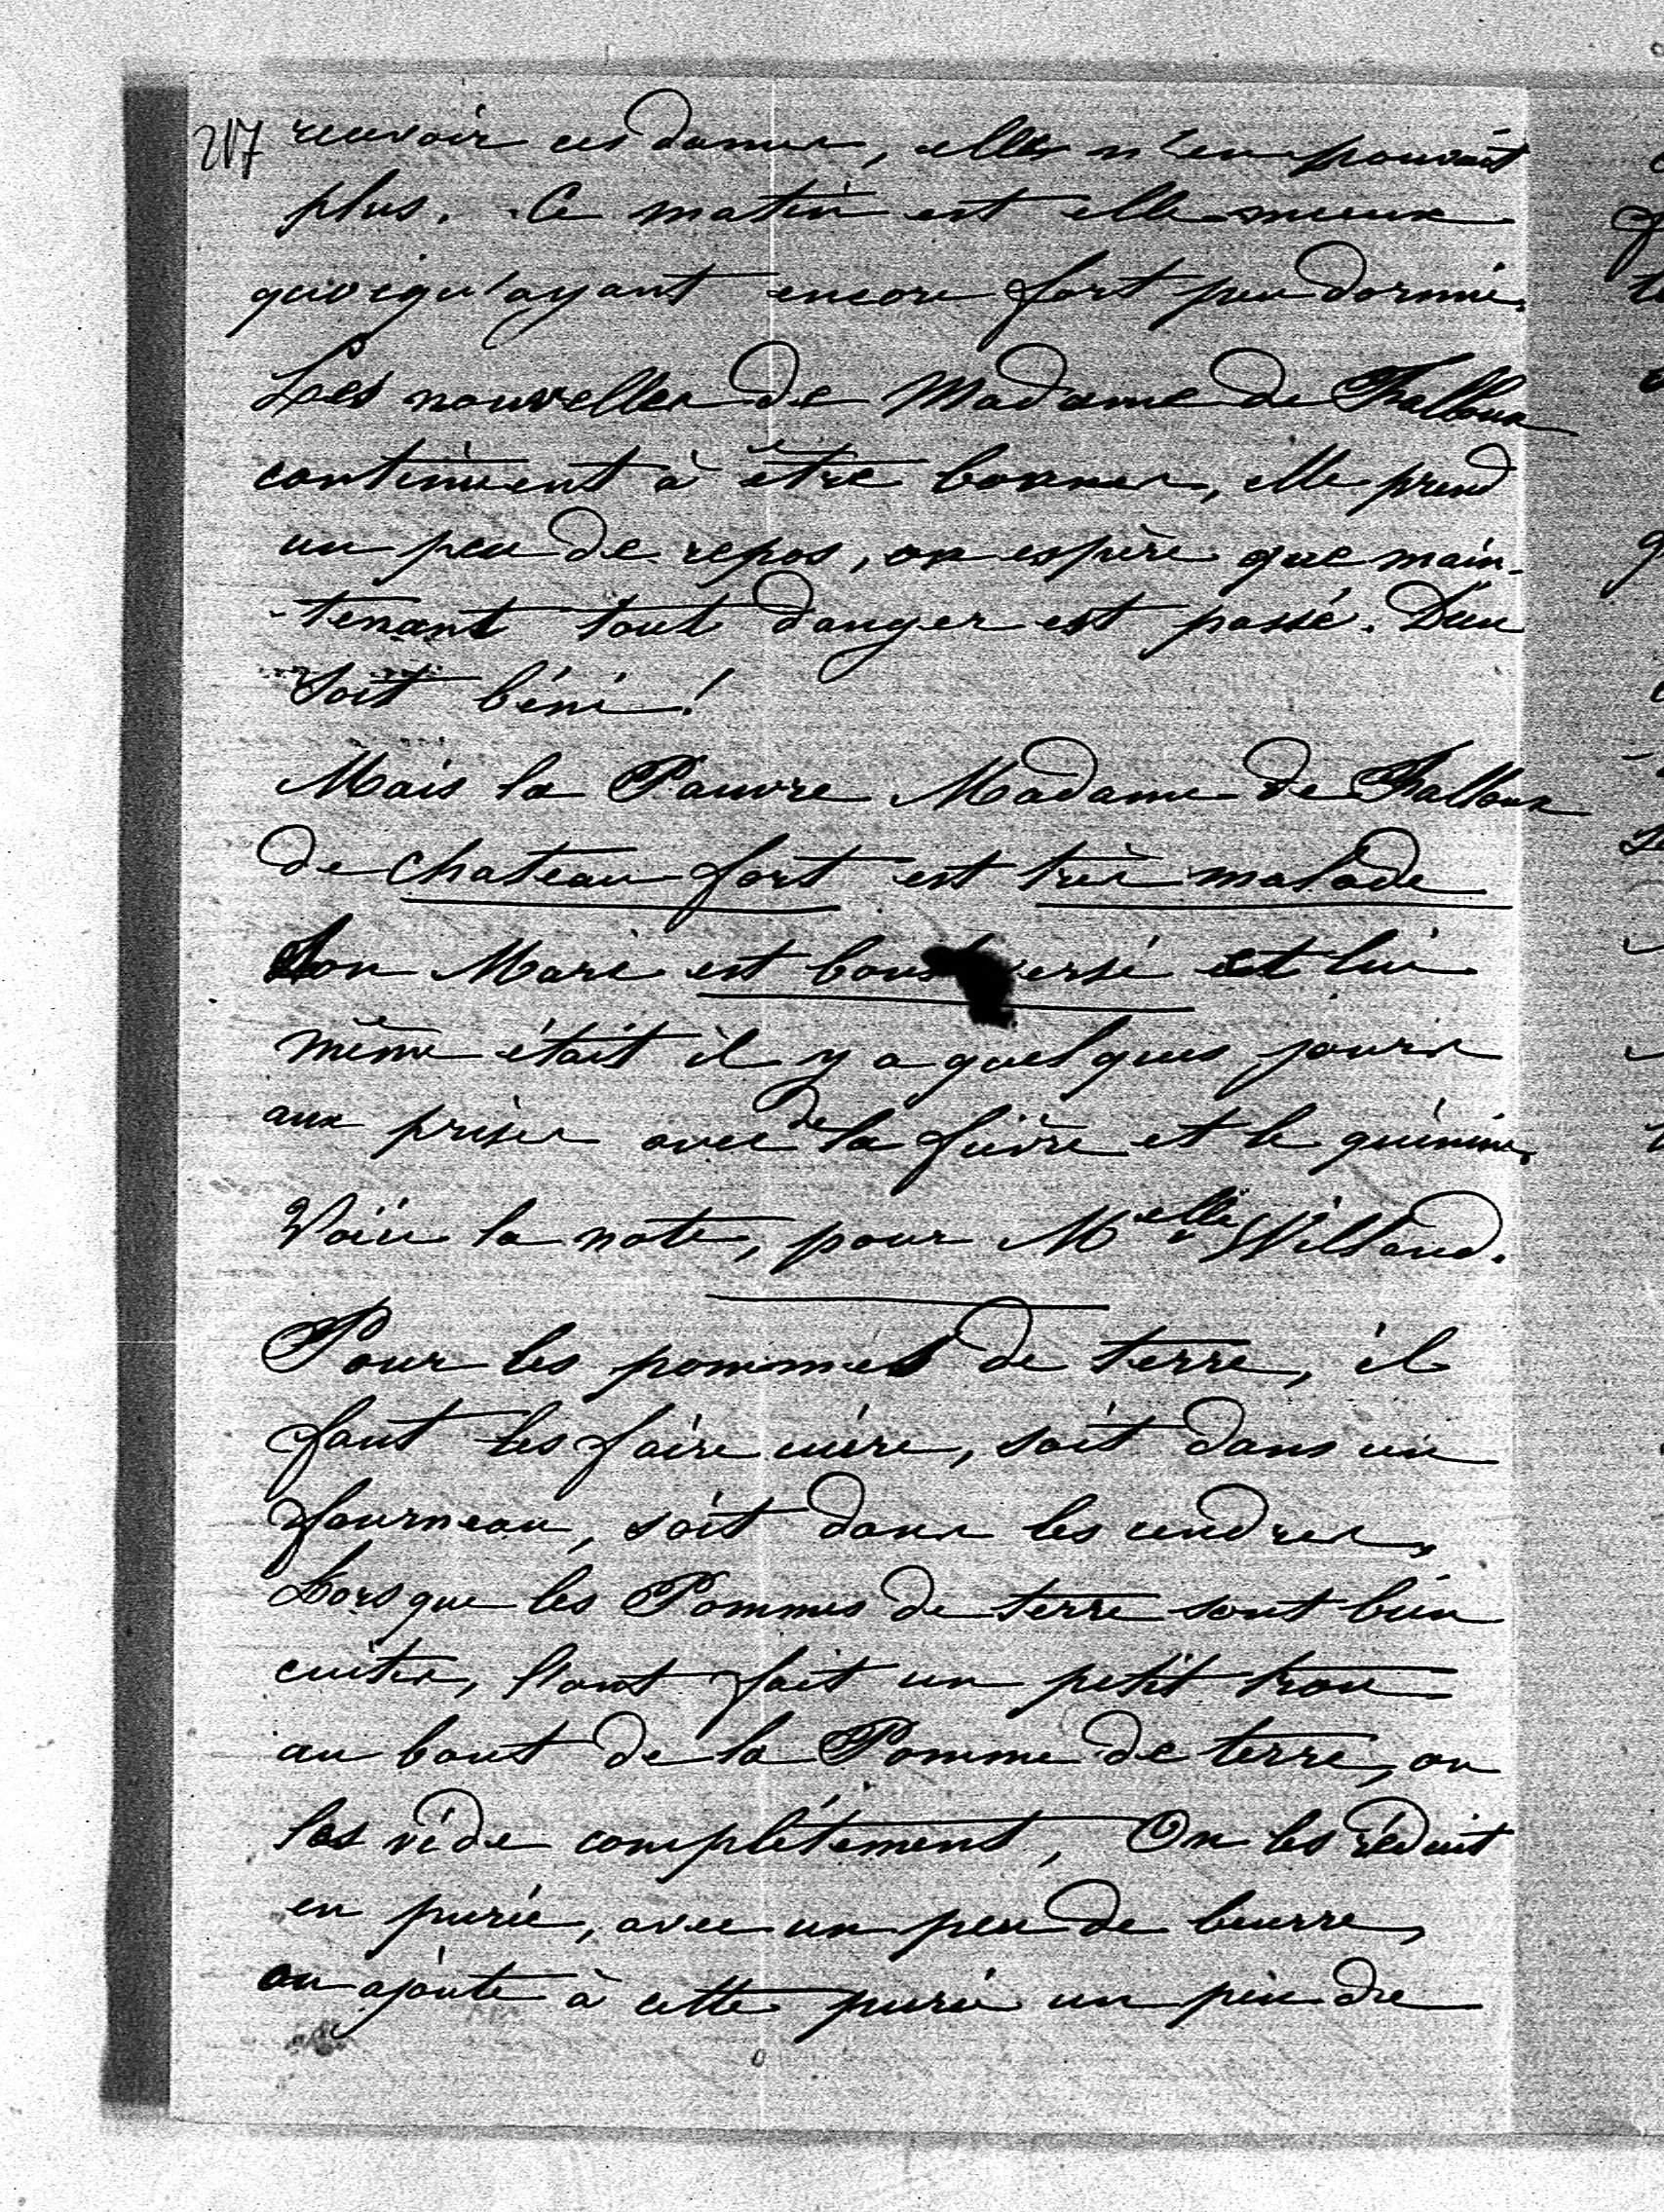 217 recevoir ces dames, elle n'en pouvait
plus. Ce matin est elle mieux
quoiqu'ayant encore fort peu dormie.
Les nouvelles de Madame de Falloux
continuent à être bonnes, elle prend
un peu de repos, on espère que main-
-tenant tout danger est passé. Dieu
soit béni !
Mais la Pauvre Madame de Falloux
de chateau fort est très malade
Son Mari est boul versé et lui
même était il y a quelques jours
aux prises avec de la fièvre et le quinine.
Voici la note, pour Melle Willaud.
Pour les pommes de terre, il
faut les faire cuire, soit dans un
fourneau, soit dans les cendres,
Lorsque les Pommes de terre sont bien
cuites, l'ont fait un petit trou
au bout de la Pomme de terre, on
les vide complétement, On les réduit
en purée, avec un peu de beurre,
on ajoute à cette purée un peu de